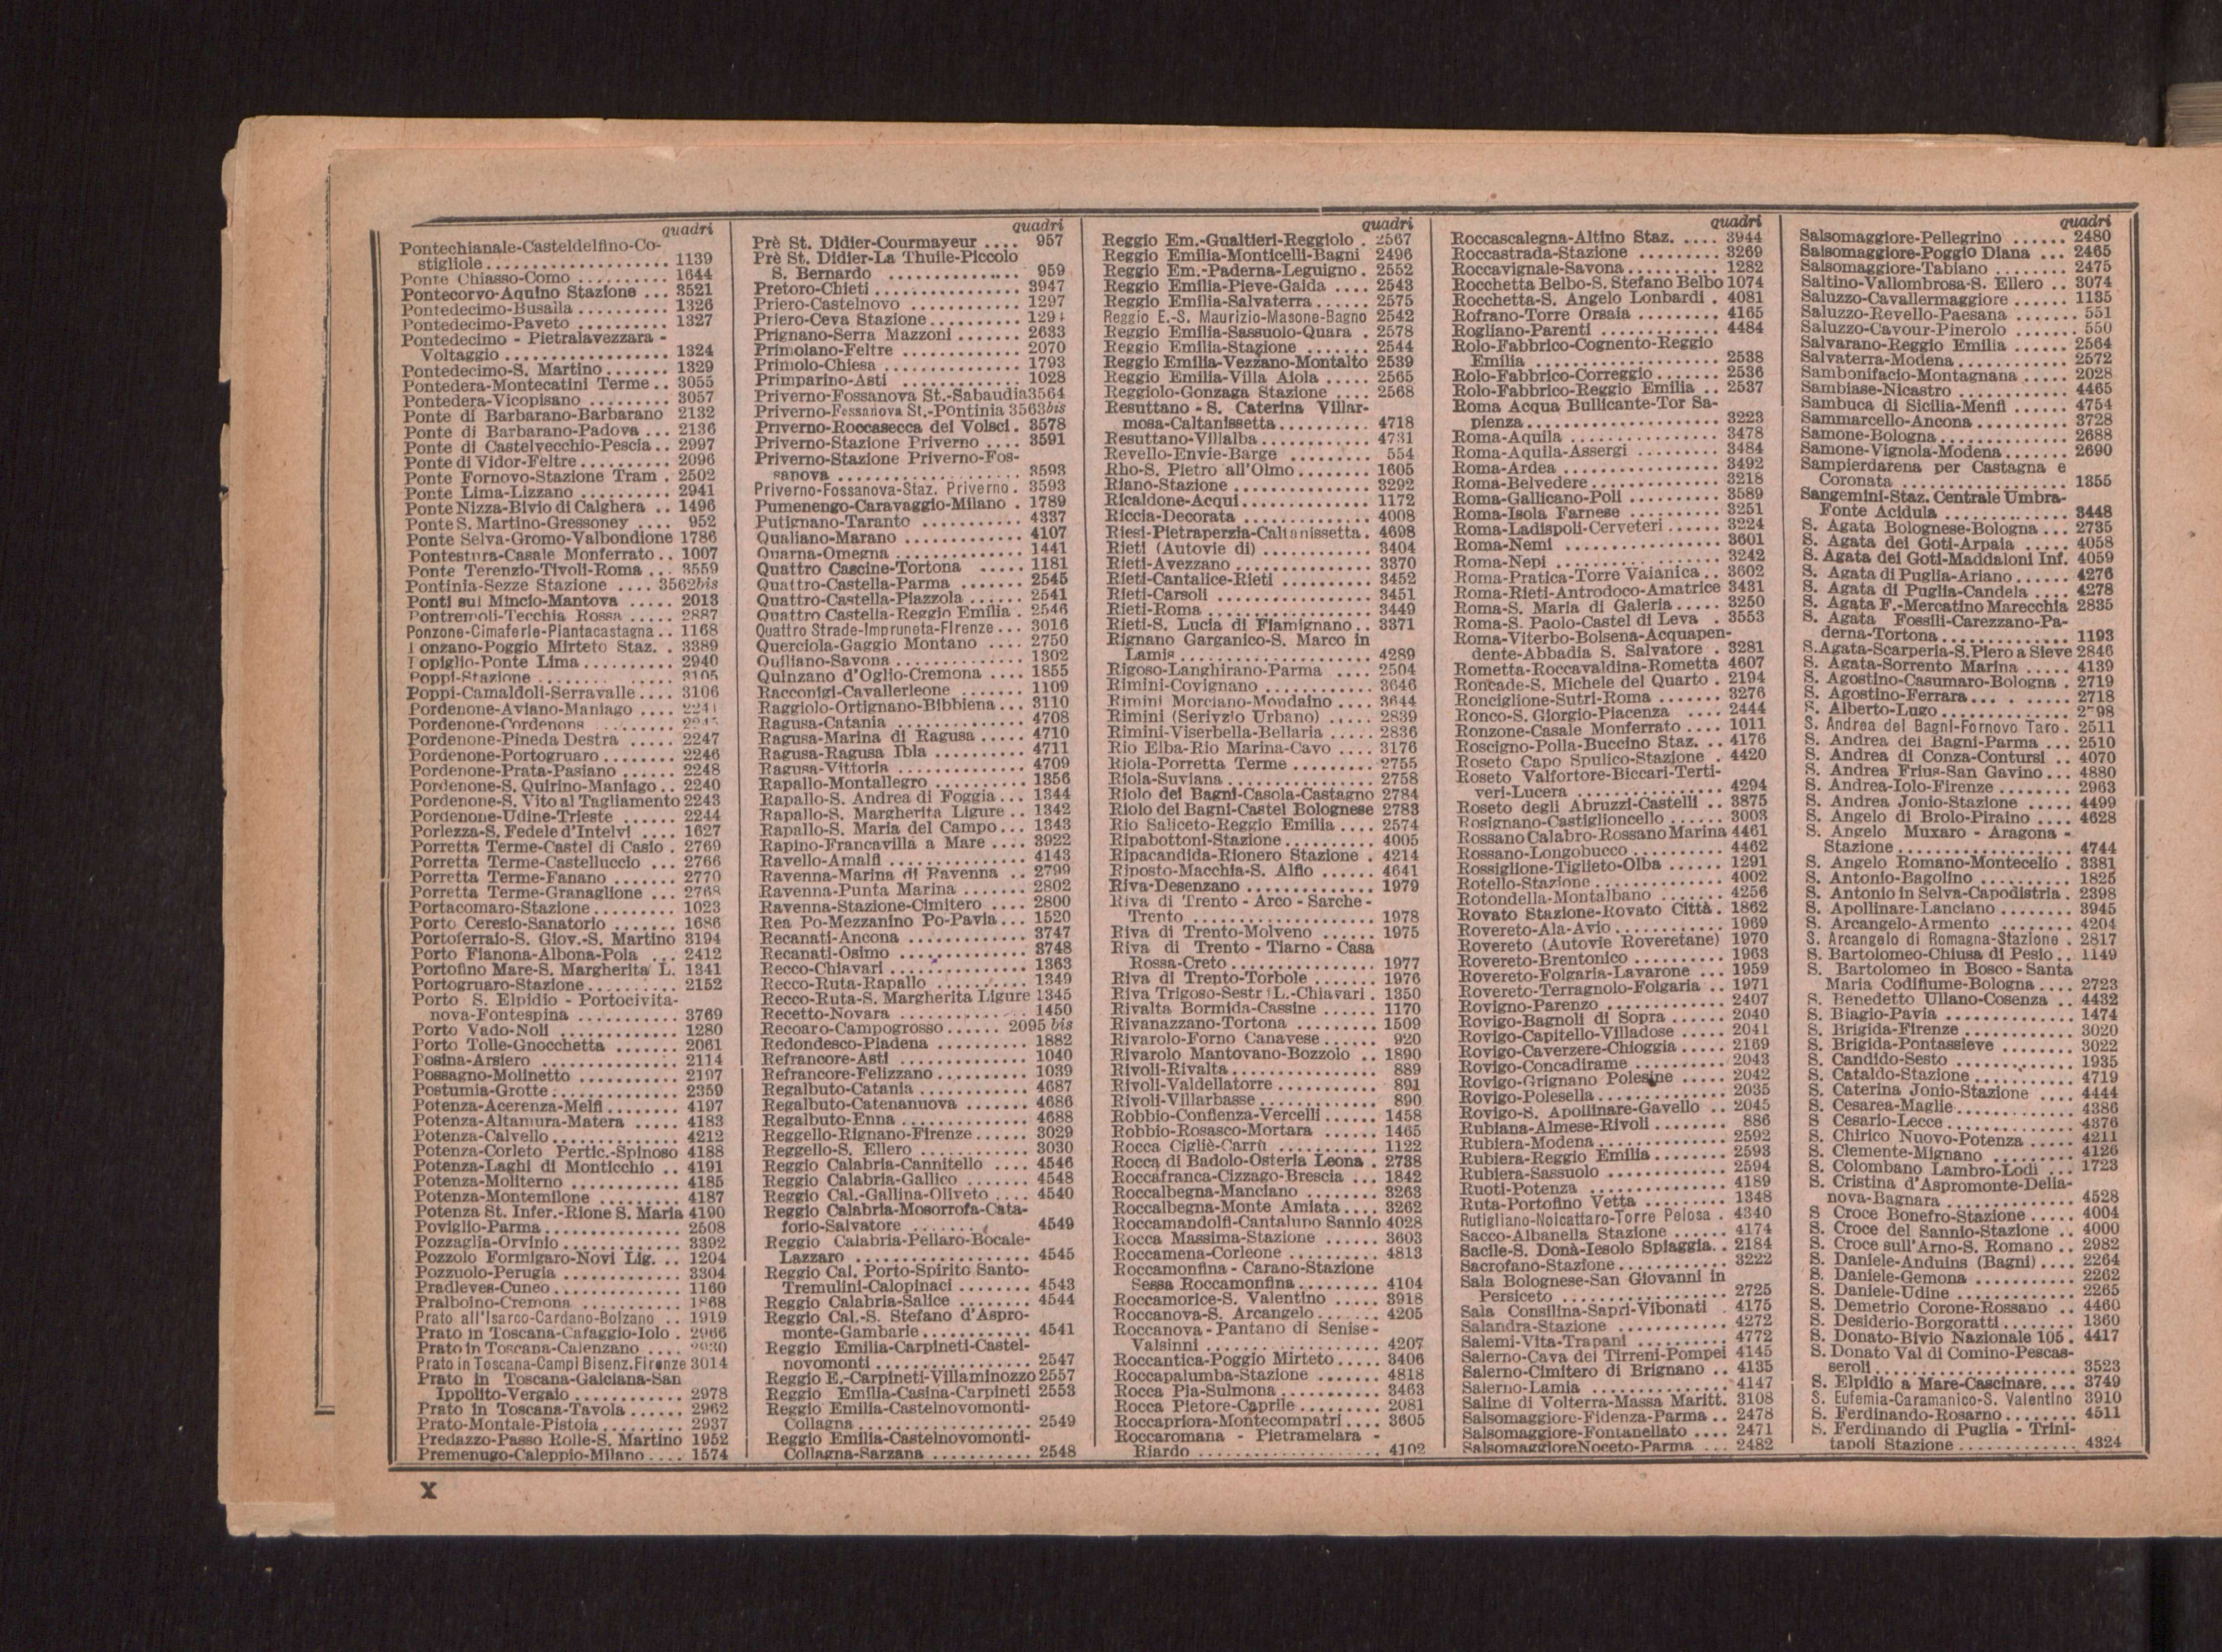 quadri
Pontechianale-Casteldelfino-Co-
stigliole................... 1139
Ponte Chiasso-Como .......... 1644
Pontecorvo-Aquino Stazione ... 3521
Pontedecimo-Busalla .......... 1326
Pontedecimo-Paveto .......... 1327
Pontedecimo - Pietralavezzara -
Voltaggio .................. 1324
Pontedecimo-S. Martino ....... 1329
Pontedera-Montecatini Terme .. 3055
Pontedera-Vicopisano ......... 3057
Ponte di Barbarano-Barbarano 2132
Ponte di Barbarano-Padova ... 2136
Ponte di Castelvecchio-Pescia.. 2997
Ponte di Vidor-Feltre.......... 2096
Ponte Fornovo-Stazione Tram . 2502
Ponte Lima-Lizzano .......... 2941
Ponte Nizza-Bivio di Calghera .. 1496
Ponte S. Martino-Gressoney .... 952
Ponte Selva-Gromo-Valbondione 1786
Pontestura-Casale Monferrato .. 1007
Ponte Terenzio-Tivoli-Roma ... 3559
Pontinia-Sezze Stazione .... 3562bis
Ponti sul Mincio-Mantova ..... 2013
Pontremoli-Tecchia Rossa ...... 2887
Ponzone-Cimaferle-Piantacastagna .. 1168
Ponzano-Poggio Mirteto Staz. . 3389
Popiglio-Ponte Lima .......... 2940
Poppi-Stazione ............... 3105
Poppi-Camaldoli-Serravalle .... 3106
Pordenone-Aviano-Maniago ....
Pordenone-Cordenons ........
Pordenone-Pineda Destra ..... 2247
Pordenone-Portogruaro ........ 2246
Pordenone-Prata-Pasiano ...... 2248
Pordenone-S. Quirino-Maniago .. 2240
Pordenone-S. Vito al Tagliamento 2243
Pordenone-Udine-Trieste ...... 2244
Porlezza-S. Fedele d'Intelvi .... 1627
Porretta Terme-Castel di Casio . 2769
Porretta Terme-Castelluccio ... 2766
Porretta Terme-Fanano ....... 2770
Porretta Terme-Granaglione ... 2768
Portacomaro-Stazione ......... 1023
Porto Ceresio-Sanatorio ....... 1686
Portoferraio-S. Giov.-S. Martino 3194
Porto Fianona-Albona-Pola ... 2412
Portofino Mare-S. Margherita L. 1341
Portogruaro-Stazione .......... 2152
Porto S. Elpidio - Portocivita-
nova-Fontespina ........... 3769
Porto Vado-Noli ............. 1280
Porto Tolle-Gnocchetta ....... 2061
Posina-Arsiero ............... 2114
Possagno-Molinetto ........... 2107
Postumia-Grotte .............. 2359
Potenza-Acerenza-Melfi ........ 4197
Potenza-Altamura-Matera ..... 4183
Potenza-Calvello .............. 4212
Potenza-Corleto Pertic.-Spinoso 4188
Potenza-Laghi di Monticchio .. 4191
Potenza-Moliterno ............ 4185
Potenza-Montemilone ......... 4187
Potenza St. Infer.-Rione S. Maria 4190
Poviglio-Parma ............... 2508
Pozzaglia-Orvinio ............. 3392
Pozzolo Formigaro-Novi Lig. .. 1204
Pozzuolo-Perugia ............. 3304
Pradleves-Cuneo .............. 1160
Pralboino-Cremona ........... 1868
Prato all'Isarco-Cardano-Bolzano .. 1919
Prato in Toscana-Cafaggio-Iolo . 2966
Prato in Toscana-Calenzano ....
Prato in Toscana-Campi Bisenz.Firenze 3014
Prato in Toscana-Galciana-San
Ippolito-Vergaio ............ 2978
Prato in Toscana-Tavola ...... 2962
Prato-Montale-Pistoia ......... 2937
Predazzo-Passo Rolle-S. Martino 1952
Premenugo-Caleppio-Milano .... 1574
quadri
Prè St. Didier-Courmayeur .... 957
Prè St. Didier-La Thuile-Piccolo
S. Bernardo ............... 959
Pretoro-Chieti ................ 3947
Priero-Castelnovo ............ 1297
Priero-Ceva Stazione..........
Prignano-Serra Mazzoni ....... 2633
Primolano-Feltre ............. 2070
Primolo-Chiesa ............... 1793
Primparino-Asti ............. 1028
Priverno-Fossanova St.-Sabaudia 3564
Priverno-Fossanova St.-Pontinia 3563bis
Priverno-Roccasecca dei Volsci . 3578
Priverno-Stazione Priverno .... 3591
Priverno-Stazione Priverno-Fos-
sanova .................... 3593
Priverno-Fossanova-Staz. Priverno . 3593
Pumenengo-Caravaggio-Milano . 1789
Putignano-Taranto ........... 4337
Qualiano-Marano ............. 4107
Quarna-Omegna ............. 1441
Quattro Cascine-Tortona ..... 1181
Quattro-Castella-Parma ....... 2545
Quattro-Castella-Piazzola ...... 2541
Quattro Castella-Reggio Emilia . 2546
Quattro Strade-Impruneta-Firenze ... 3016
Querciola-Gaggio Montano .... 2750
Quiliano-Savona .............. 1302
Quinzano d'Oglio-Cremona .... 1855
Racconigi-Cavallerleone ....... 1109
Raggiolo-Ortignano-Bibbiena ... 3110
Ragusa-Catania .............. 4708
Ragusa-Marina di Ragusa ..... 4710
Ragusa-Ragusa Ibla .......... 4711
Ragusa-Vittoria .............. 4709
Rapallo-Montallegro .......... 1356
Rapallo-S. Andrea di Foggia ... 1344
Rapallo-S. Margherita Ligure .. 1342
Rapallo-S. Maria del Campo ... 1343
Rapino-Francavilla a Mare .... 3922
Ravello-Amalfi ............... 4143
Ravenna-Marina di Ravenna .. 2799
Ravenna-Punta Marina ....... 2802
Ravenna-Stazione-Cimitero .... 2800
Rea Po-Mezzanino Po-Pavia ... 1520
Recanati-Ancona ............. 3747
Recanati-Osimo .............. 3748
Recco-Chiavari ............... 1363
Recco-Ruta-Rapallo .......... 1349
Recco-Ruta-S. Margherita Ligure 1345
Recetto-Novara .............. 1450
Recoaro-Campogrosso ...... 2095 bis
Redondesco-Piadena .......... 1882
Refrancore-Asti .............. 1040
Refrancore-Felizzano .......... 1039
Regalbuto-Catania ............ 4687
Regalbuto-Catenanuova ....... 4686
Regalbuto-Enna .............. 4688
Reggello-Rignano-Firenze ...... 3029
Reggello-S. Ellero ............ 3030
Reggio Calabria-Cannitello .... 4546
Reggio Calabria-Gallico ....... 4548
Reggio Cal.-Gallina-Oliveto .... 4540
Reggio Calabria-Mosorrofa-Cata-
forio-Salvatore ............. 4549
Reggio Calabria-Pellaro-Bocale-
Lazzaro .................. 4545
Reggio Cal. Porto-Spirito Santo-
Tremulini-Calopinaci ........ 4543
Reggio Calabria-Salice ........ 4544
Reggio Cal.-S. Stefano d'Aspro-
monte-Gambarie ............ 4541
Reggio Emilia-Carpineti-Castel-
novomonti ................. 2547
Reggio E.-Carpineti-Villaminozzo 2557
Reggio Emilia-Casina-Carpineti 2553
Reggio Emilia-Castelnovomonti-
Collagna ................... 2549
Reggio Emilia-Castelnovomonti-
Collagna-Sarzana ........... 2548
quadri
Reggio Em.-Gualtieri-Reggiolo . 2567
Reggio Emilia-Monticelli-Bagni 2496
Reggio Em.-Paderna-Leguigno . 2552
Reggio Emilia-Pieve-Gaida .... 2543
Reggio Emilia-Salvaterra ...... 2575
Reggio E.-S. Maurizio-Masone-Bagno 2542
Reggio Emilia-Sassuolo-Quara . 2578
Reggio Emilia-Stazione ....... 2544
Reggio Emilia-Vezzano-Montalto 2539
Reggio Emilia-Villa Aiola ..... 2565
Reggiolo-Gonzaga Stazione .... 2568
Resuttano - S. Caterina Villar-
mosa-Caltanissetta .......... 4718
Resuttano-Villalba ............ 4731
Revello-Envie-Barge ......... 554
Rho-S. Pietro all'Olmo ........ 1605
Riano-Stazione ............... 3292
Ricaldone-Acqui .............. 1172
Riccia-Decorata .............. 4008
Riesi-Pietraperzia-Caltanissetta . 4698
Rieti (Autovie di) ............ 3404
Rieti-Avezzano ............... 3370
Rieti-Cantalice-Rieti .......... 3452
Rieti-Carsoli ................. 3451
Rieti-Roma .................. 3449
Rieti-S. Lucia di Fiamignano .. 3371
Rignano Garganico-S. Marco in
Lamis ..................... 4289
Rigoso-Langhirano-Parma .... 2504
Rimini-Covignano ............ 3646
Rimini Morciano-Mondaino .... 3644
Rimini (Serivzio Urbano) ..... 2839
Rimini-Viserbella-Bellaria ..... 2836
Rio Elba-Rio Marina-Cavo .... 3176
Riola-Porretta Terme ......... 2755
Riola-Suviana ................ 2758
Riolo dei Bagni-Casola-Castagno 2784
Riolo dei Bagni-Castel Bolognese 2783
Rio Saliceto-Reggio Emilia .... 2574
Ripabottoni-Stazione .......... 4005
Ripacandida-Rionero Stazione . 4214
Riposto-Macchia-S. Alfio ...... 4641
Riva-Desenzano .............. 1979
Riva di Trento - Arco - Sarche -
Trento .................... 1978
Riva di Trento-Molveno ...... 1975
Riva di Trento - Tiarno - Casa
Rossa-Creto ................ 1977
Riva di Trento-Torbole ....... 1976
Riva Trigoso-Sestri L.-Chiavari . 1350
Rivalta Bormida-Cassine ...... 1170
Rivanazzano-Tortona ......... 1509
Rivarolo-Forno Canavese ...... 920
Rivarolo Mantovano-Bozzolo .. 1890
Rivoli-Rivalta ................ 889
Rivoli-Valdellatorre ........... 891
Rivoli-Villarbasse ............. 890
Robbio-Confienza-Vercelli ..... 1458
Robbio-Rosasco-Mortara ...... 1465
Rocca Cigliè-Carrù ........... 1122
Rocca di Badolo-Osteria Leona . 2738
Roccafranca-Cizzago-Brescia ... 1842
Roccalbegna-Manciano ........ 3263
Roccalbegna-Monte Amiata .... 3262
Roccamandolfi-Cantalupo Sannio 4028
Rocca Massima-Stazione ...... 3603
Roccamena-Corleone .......... 4813
Roccamonfina - Carano-Stazione
Sessa Roccamonfina ......... 4104
Roccamorice-S. Valentino ..... 3918
Roccanova-S. Arcangelo ....... 4205
Roccanova - Pantano di Senise -
Valsinni ................... 4207
Roccantica-Poggio Mirteto ..... 3406
Roccapalumba-Stazione ....... 4818
Rocca Pia-Sulmona ........... 3463
Rocca Pietore-Caprile ......... 2081
Roccapriora-Montecompatri .... 3605
Roccaromana - Pietramelara -
Riardo .................... 4102
quadri
Roccascalegna-Altino Staz. .... 3944
Roccastrada-Stazione ......... 3269
Roccavignale-Savona .......... 1282
Rocchetta Belbo-S. Stefano Belbo 1074
Rocchetta-S. Angelo Lonbardi . 4081
Rofrano-Torre Orsaia ......... 4165
Rogliano-Parenti ............. 4484
Rolo-Fabbrico-Cognento-Reggio
Emilia .................... 2538
Rolo-Fabbrico-Correggio ....... 2536
Rolo-Fabbrico-Reggio Emilia .. 2537
Roma Acqua Bullicante-Tor Sa-
pienza .................... 3223
Roma-Aquila ................ 3478
Roma-Aquila-Assergi ......... 3484
Roma-Ardea ................. 3492
Roma-Belvedere .............. 3218
Roma-Gallicano-Poli .......... 3589
Roma-Isola Farnese .......... 3251
Roma-Ladispoli-Cerveteri ...... 3224
Roma-Nemi ................. 3601
Roma-Nepi .................. 3242
Roma-Pratica-Torre Vaianica .. 3602
Roma-Rieti-Antrodoco-Amatrice 3431
Roma-S. Maria di Galeria ..... 3250
Roma-S. Paolo-Castel di Leva . 3553
Roma-Viterbo-Bolsena-Acquapen-
dente-Abbadia S. Salvatore . 3281
Rometta-Roccavaldina-Rometta 4607
Roncade-S. Michele del Quarto . 2194
Ronciglione-Sutri-Roma ....... 3276
Ronco-S. Giorgio-Piacenza .... 2444
Ronzone-Casale Monferrato .... 1011
Roscigno-Polla-Buccino Staz. .. 4176
Roseto Capo Spulico-Stazione . 4420
Roseto Valfortore-Biccari-Terti-
veri-Lucera ................ 4294
Roseto degli Abruzzi-Castelli .. 3875
Rosignano-Castiglioncello ...... 3003
Rossano Calabro-Rossano Marina 4461
Rossano-Longobucco .......... 4462
Rossiglione-Tiglieto-Olba ...... 1291
Rotello-Stazione .............. 4002
Rotondella-Montalbano ....... 4256
Rovato Stazione-Rovato Città . 1862
Rovereto-Ala-Avio ............ 1969
Rovereto (Autovie Roveretane) 1970
Rovereto-Brentonico .......... 1963
Rovereto-Folgaria-Lavarone ... 1959
Rovereto-Terragnolo-Folgaria .. 1971
Rovigno-Parenzo ............. 2407
Rovigo-Bagnoli di Sopra ...... 2040
Rovigo-Capitello-Villadose ..... 2041
Rovigo-Caverzere-Chioggia ..... 2169
Rovigo-Concadirame .......... 2043
Rovigo-Grignano Polesine ..... 2042
Rovigo-Polesella .............. 2035
Rovigo-S. Apollinare-Gavello .. 2045
Rubiana-Almese-Rivoli ........ 886
Rubiera-Modena .............. 2592
Rubiera-Reggio Emilia ........ 2593
Rubiera-Sassuolo ............. 2594
Ruoti-Potenza ............... 4189
Ruta-Portofino Vetta ......... 1348
Rutigliano-Noicattaro-Torre Pelosa . 4340
Sacco-Albanella Stazione ...... 4174
Sacile-S. Donà-Iesolo Spiaggia.. 2184
Sacrofano-Stazione ............ 3222
Sala Bolognese-San Giovanni in
Persiceto .................. 2725
Sala Consilina-Sapri-Vibonati . 4175
Salandra-Stazione ............ 4272
Salemi-Vita-Trapani .......... 4772
Salerno-Cava dei Tirreni-Pompei 4145
Salerno-Cimitero di Brignano .. 4135
Salerno-Lamia ............... 4147
Saline di Volterra-Massa Maritt. 3108
Salsomaggiore-Fidenza-Parma .. 2478
Salsomaggiore-Fontanellato .... 2471
SalsomaggioreNoceto-Parma ... 2482
quadri
Salsomaggiore-Pellegrino ...... 2480
Salsomaggiore-Poggio Diana ... 2465
Salsomaggiore-Tabiano ........ 2475
Saltino-Vallombrosa-S. Ellero .. 3074
Saluzzo-Cavallermaggiore ...... 1135
Saluzzo-Revello-Paesana ....... 551
Saluzzo-Cavour-Pinerolo ...... 550
Salvarano-Reggio Emilia ...... 2564
Salvaterra-Modena ............ 2572
Sambonifacio-Montagnana ..... 2028
Sambiase-Nicastro ............ 4465
Sambuca di Sicilia-Menfi ...... 4754
Sammarcello-Ancona .......... 3728
Samone-Bologna .............. 2688
Samone-Vignola-Modena ....... 2690
Sampierdarena per Castagna e
Coronata .................. 1355
Sangemini-Staz. Centrale Umbra-
Fonte Acidula .............. 3448
S. Agata Bolognese-Bologna ... 2735
S. Agata dei Goti-Arpaia ..... 4058
S. Agata dei Goti-Maddaloni Inf. 4059
S. Agata di Puglia-Ariano ...... 4276
S. Agata di Puglia-Candela .... 4278
S. Agata F.-Mercatino Marecchia 2835
S. Agata Fossili-Carezzano-Pa-
derna-Tortona .............. 1193
S. Agata-Scarperia-S. Piero a Sieve 2846
S. Agata-Sorrento Marina ..... 4139
S. Agostino-Casumaro-Bologna . 2719
S. Agostino-Ferrara ........... 2718
S. Alberto-Lugo ..............
S. Andrea dei Bagni-Fornovo Taro . 2511
S. Andrea dei Bagni-Parma ... 2510
S. Andrea di Conza-Contursi .. 4070
S. Andrea Frius-San Gavino ... 4880
S. Andrea-Iolo-Firenze ........ 2963
S. Andrea Jonio-Stazione ..... 4499
S. Angelo di Brolo-Piraino .... 4628
S. Angelo Muxaro - Aragona -
Stazione ................... 4744
S. Angelo Romano-Montecelio . 3381
S. Antonio-Bagolino .......... 1825
S. Antonio in Selva-Capodistria . 2398
S. Apollinare-Lanciano ........ 3945
S. Arcangelo-Armento ........ 4204
S. Arcangelo di Romagna-Stazione . 2817
S. Bartolomeo-Chiusa di Pesio .. 1149
S. Bartolomeo in Bosco - Santa
Maria Codifiume-Bologna .... 2723
S. Benedetto Ullano-Cosenza .. 4432
S. Biagio-Pavia .............. 1474
S. Brigida-Firenze ............ 3020
S. Brigida-Pontassieve ........ 3022
S. Candido-Sesto ............. 1935
S. Cataldo-Stazione ........... 4719
S. Caterina Jonio-Stazione .... 4444
S. Cesarea-Maglie ............ 4386
S Cesario-Lecce .............. 4376
S. Chirico Nuovo-Potenza ..... 4211
S. Clemente-Mignano ......... 4126
S. Colombano Lambro-Lodi ... 1723
S. Cristina d'Aspromonte-Delia-
nova-Bagnara .............. 4528
S Croce Bonefro-Stazione ..... 4004
S. Croce del Sannio-Stazione .. 4000
S. Croce sull'Arno-S. Romano .. 2982
S. Daniele-Anduins (Bagni) .... 2264
S. Daniele-Gemona ........... 2262
S. Daniele-Udine ............. 2265
S. Demetrio Corone-Rossano .. 4460
S. Desiderio-Borgoratti ........ 1360
S. Donato-Bivio Nazionale 105 . 4417
S. Donato Val di Comino-Pescas-
seroli ..................... 3523
S. Elpidio a Mare-Cascinare.... 3749
S. Eufemia-Caramanico-S. Valentino 3910
S. Ferdinando-Rosarno ........ 4511
S. Ferdinando di Puglia - Trini-
tapoli Stazione ............. 4324
X